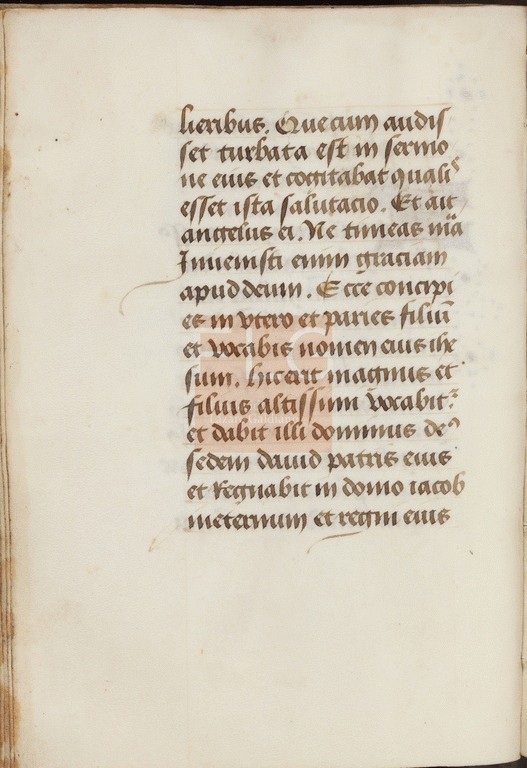 lieribus. Que cum audis
set turbata est in sermo
ne eius et cogitabat qualis
esset ista salutacio. Et ait
angelus ei. Ne timeas m̄a
Invenisti enim graciam
apud deum. Ecce concipi
es in vtero et paries filiū
et vocabis nomen eius ihe
sum. hic erit magnus et
filius altissimi vocabitꝛ
et dabit illi dominus deꝰ
sedem dauid patris eius
et Regnabit in domo iacob
ineternum et regni eius